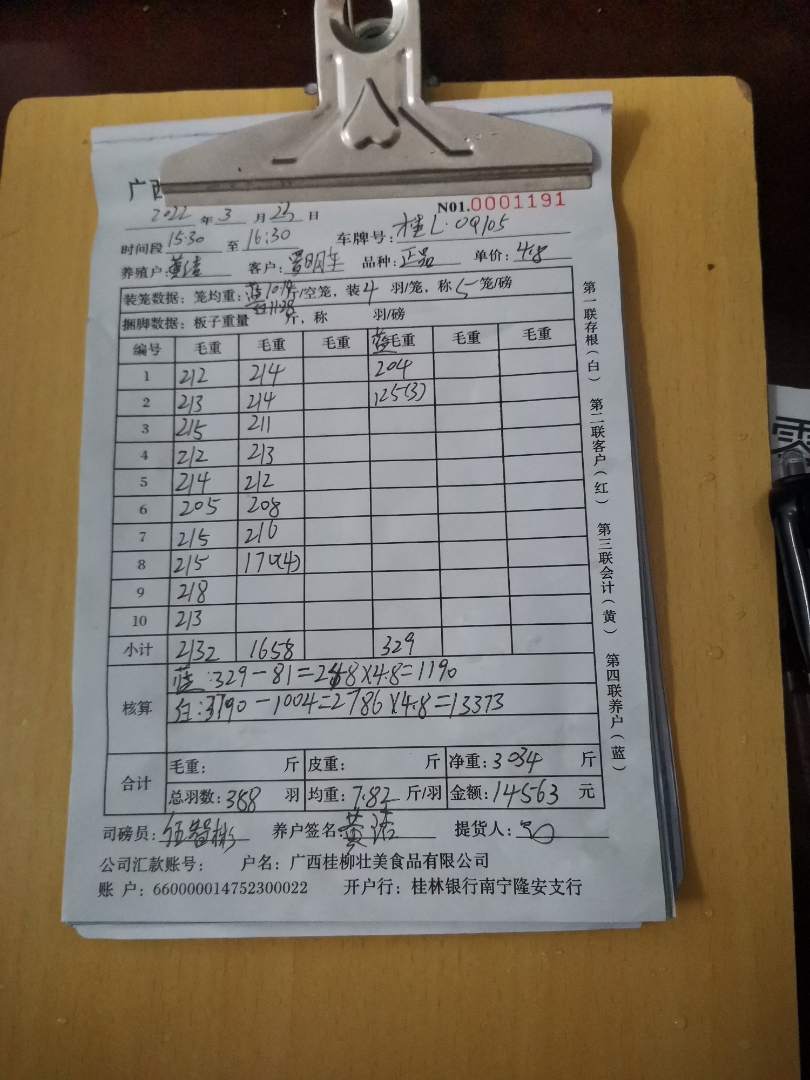 广西
N01.0001191
2022 年 3 月 23 日
时间段 15:30 至 16:30 车牌号: 桂L·0Q105
养殖户: 客户: 品种: 正品 单价: 4.8
装笼数据: 笼均重: 蓝 斤/空笼, 装 4 羽/笼, 称 5 笼/磅
捆脚数据: 板子重量 斤, 称 羽/磅
编号 毛重 毛重 毛重 蓝毛重 毛重 毛重
1 212 214 204
2 213 214 125(3)
3 215 211
4 212 213
5 214 212
6 205 208
7 215 216
8 215 170(4)
9 218
10 213
小计 2132 1658 329
核算 蓝:329-81=248×4.8=1190
红:3790-1004=2786×4.8=13373
合计 毛重: 斤 皮重: 斤 净重: 3034 斤
总羽数: 388 羽 均重: 7.82 斤/羽 金额: 14563 元
司磅员: 养户签名 黄 提货人:
公司汇款账号: 户名: 广西桂柳壮美食品有限公司
账 户: 660000014752300022 开户行: 桂林银行南宁隆安支行
第一联存根(白) 第二联客户(红) 第三联会计(黄) 第四联养户(蓝)